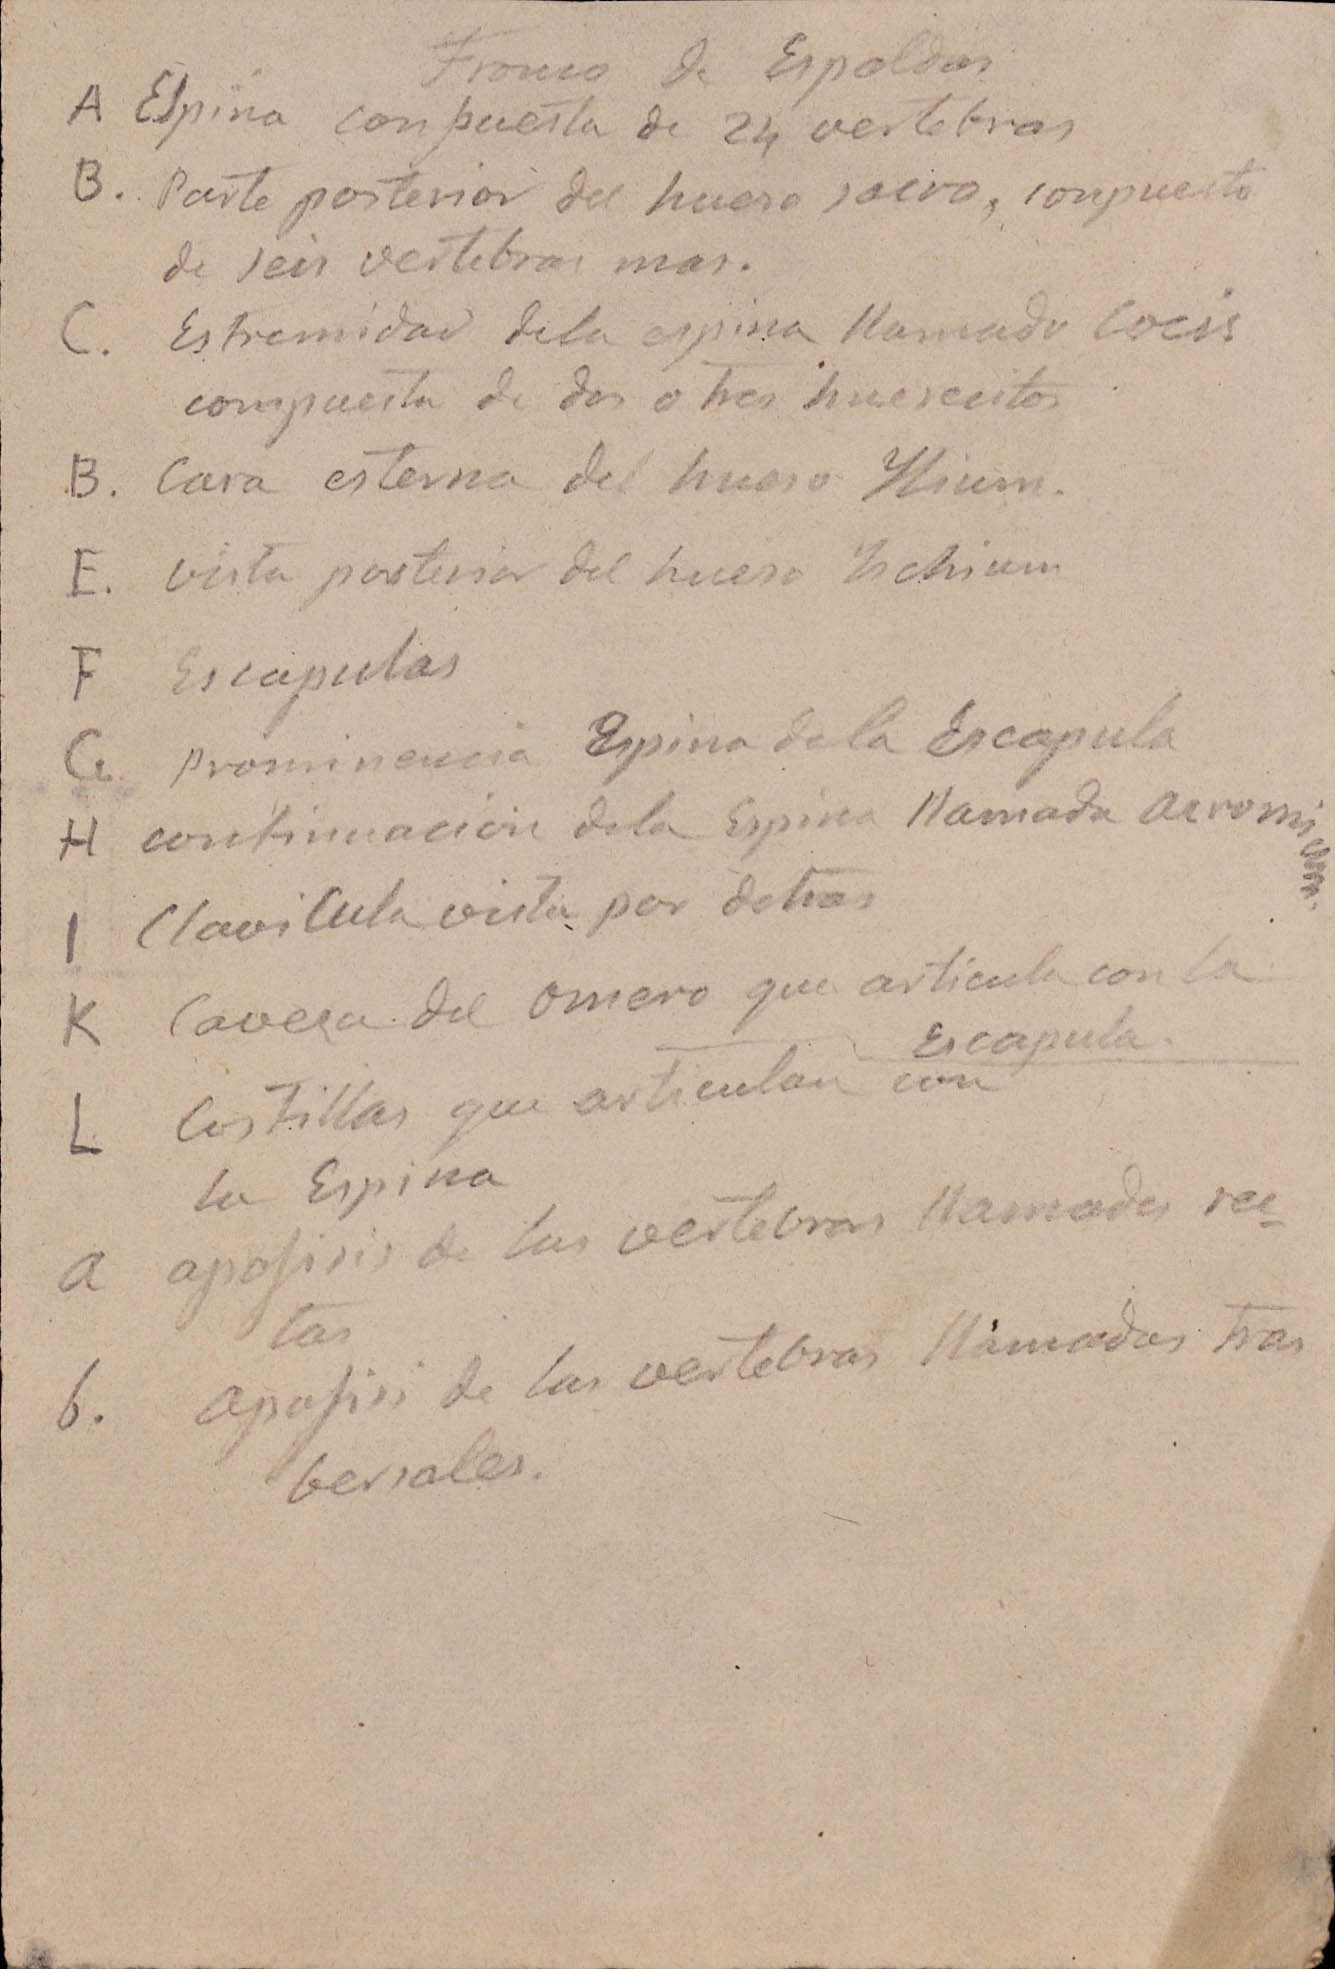 Tronco de Espaldas
A Espina conpuesta de 24 vertebras
B. Parte posterior del hueso sacro, conpuesto
de seis vertebras mas.
C. Estremidad dela espina llamado Cocis
compuesta de dos o tres huesecitos
B. Cara esterna del hueso Ylium.
E. vista posterior del hueso Yschium
F Escapulas
G. Prominencia Espina de la Escapula
H continuacion dela Espina llamada acromi
I Clavicula vista por detras
K Caveza del Omero que articula con la
Escapula.
L Costillas que articulan con
la Espina
a apofisis de las vertebras llamadas rec-
tas
b. apofisis de las vertebras llamadas tras
bersales.